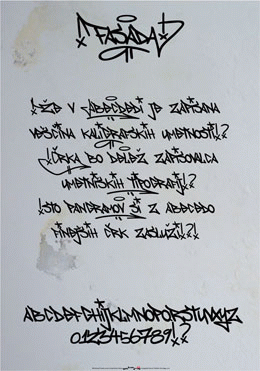 !FASADA?
!ŽE V ABECEDI JE ZAPISANA
VEČINA KALIGRAFSKIH UMETNOSTI!?
!ČRKA BO DELEŽ ZAPISOVALCA
UMETNIŠKIH TIPOGRAFIJ!?
!STO PANGRAMOV SI Z ABECEDO
FINEJŠIH ČRK ZASLUŽI!?!
ABCDEFGHIJKLMNOPQRSTUVWXYZ
0123456789!?